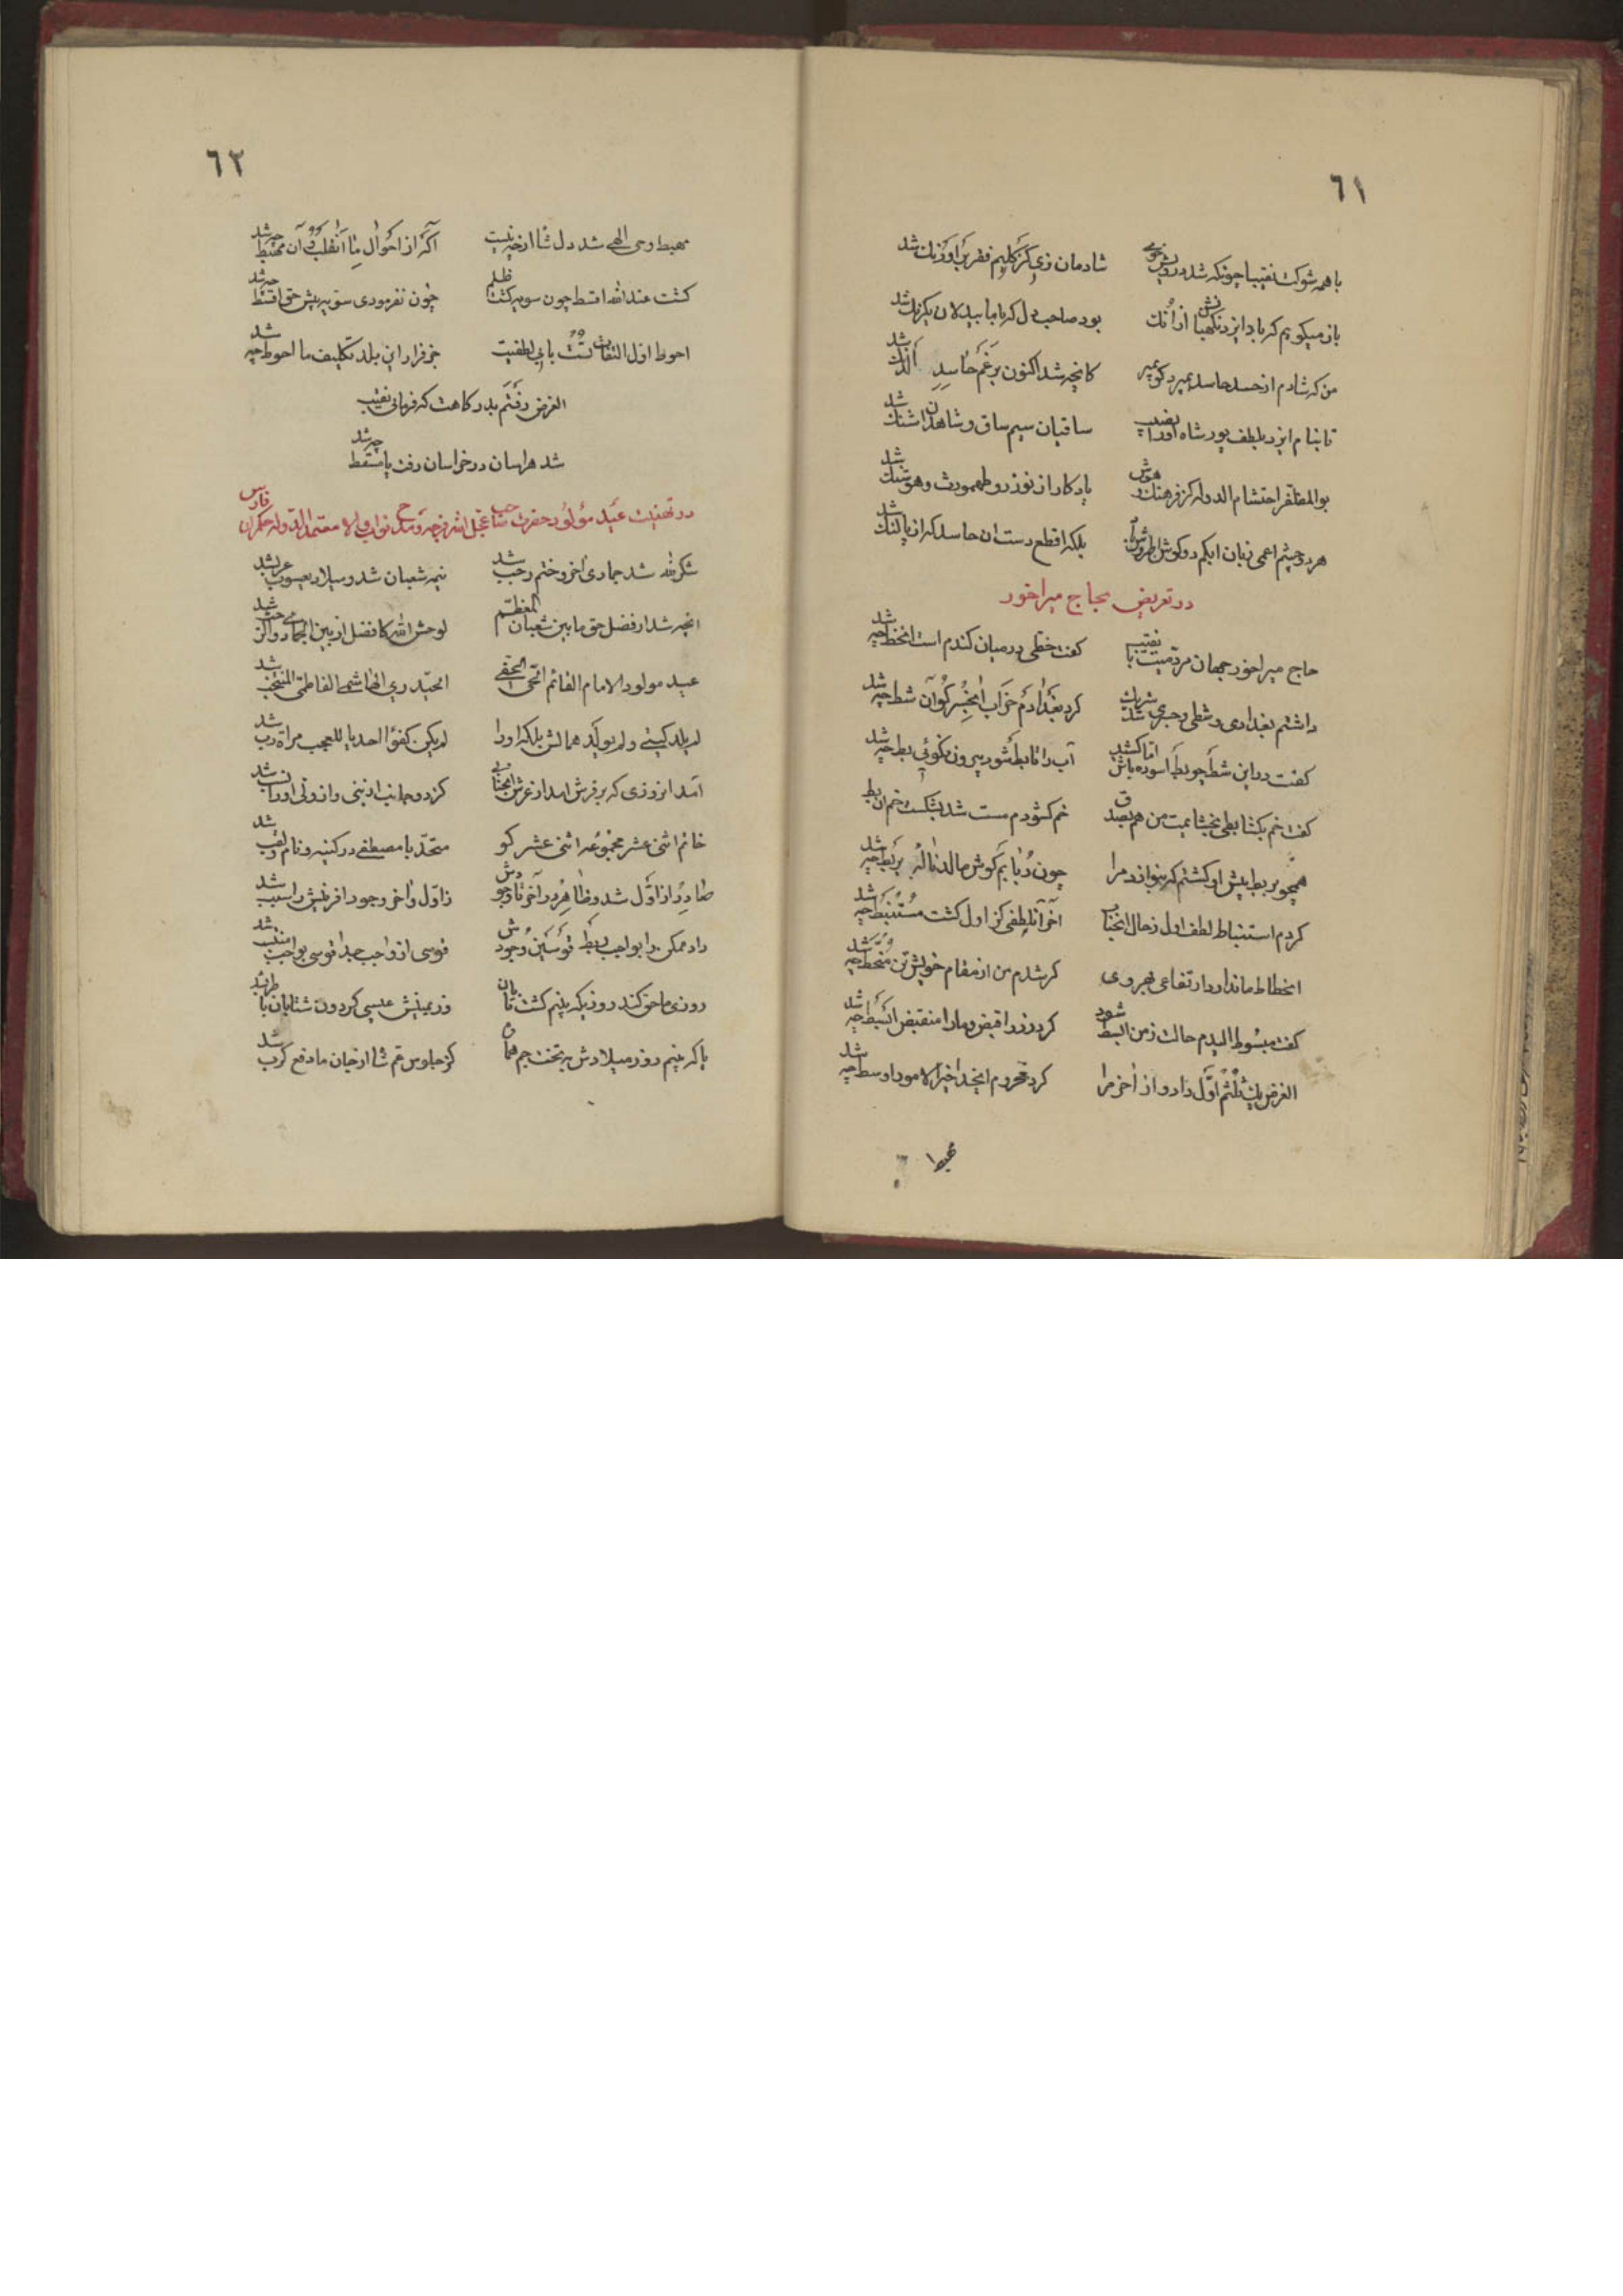 ٦١
با همه شوکت نقیبا چونکه شد درویش خوی شادمان زی کز کلیم فقر برآورنك شد
باز میکویم که باد ایزد نکهبانش از آنك بود صاحب دل که با ما بیدلان یکرنك شد
من که شادم از حسد حاسد بمیرد کو بمیر کانچه شد اکنون برغم حاسد
تا بنام ایزد بلطف پور شاه اورا نصیب ساقیان سیم ساق و شاهدان شنك شد
بوالمظفر احتشام الدوله کز فرهنك و هوش یادکار از نوذر و طهمورث و هوشنك شد
هر دو چشم اعمی زبان ابکم دو کوش بلکه اقطع دست ان حاسد که از پا لنك شد
در تعریض بحاج میراخور
حاج میراخور جهان مردمیت با نقیب کفت خطی در میان کندم است انخط چه شد
داشتم بغدادی و شطی و جسری کرد بغدادم خراب آن شط چه شد
کفت در این شط چو بط آسوده باش اما آب را تا بط شور بیرون نکوئی بط چه شد
کفت خم بکشا بطی بخشایمت من هم بصدق خم کشودم مست شد بشکست خم ان بط
همچو بربط پیش او کشتم که بنوازد مرا چون دبابم کوش مالد ناله بربط چه شد
کردم استنباط لطف اول ز حال انجناب آخر آنلطفی کز اول کشت مستنبط چه شد
انحطاط ما ندارد ارتفاعی بهر وی کر شدم من از مقام خویشتن منحط چه شد
کفت مبسوط الیدم حالت ز من ابسط شود کرد زر را قبض و مارا منقبض ابسط چه شد
الغرض یك ثلثم اول داد و از آخر مرا کرد محروم اینجد اخیر الامور اوسط چه شد
مهبط
٦٢
مهبط وحی الهی شد دل شاه ار نیست آکه از احوال ما آنقلب و آن مهبط چه شد
کشت عند الله اقسط چون سویه کشت ظلم چون نفرمودی سویه پیش حق اقسط چه شد
احوط اول التفات تست با بی لطفیت جز فرار این بلد تکلیف ما احوط چه شد
الغرض رفتم بدرکاهت که فرمائی نقیب
شد هراسان در خراسان رفت یا مسقط چه شد
در تهنیت عید مولود حضرت صاحب عجل الله فرجه و مدح نواب والا معتمد الدوله حکمران فارس
شکر لله شد جمادی آخر و ختم رجب شد نیمه شعبان شد و میلاد یعسوب عرب شد
انچه شد از فضل حق ما بین شعبان المعظم لوحش الله کافضل از بین الجمادی و الرجب شد
عید مولود الامام القائم الحی الخفی الحیدری الهاشمی الفاطمی المنتجب شد
لم یلد کیتی و لم یولد همالش بلکه اورا لم یکن کفؤا احد یا للعجب مرآة رب شد
آمد ابروزی که بر فرش امد از عرش انجنابی کز دو جانب ادنی و اورا نسب شد
خاتم اثنی عشر مجموعه اثنی عشر کو متحد با مصطفی در کنیه و نام و لقب شد
صادر از اول شد و ظاهر در آخر تا وجودش ز اول و آخر وجود افرینش را سبب شد
داد ممکن را بواجب ربط قوسین وجودش قوسی از واجب جدا قوسی بواجب منتسب شد
روزی ما حق کند روزیکه بینم کشت تابان وز یمینش عیسی کردون شتابان با طرب شد
یا که بینم روز میلادش به تخت جم همان کز جلوس عم شاه از جان ما دفع کرب شد